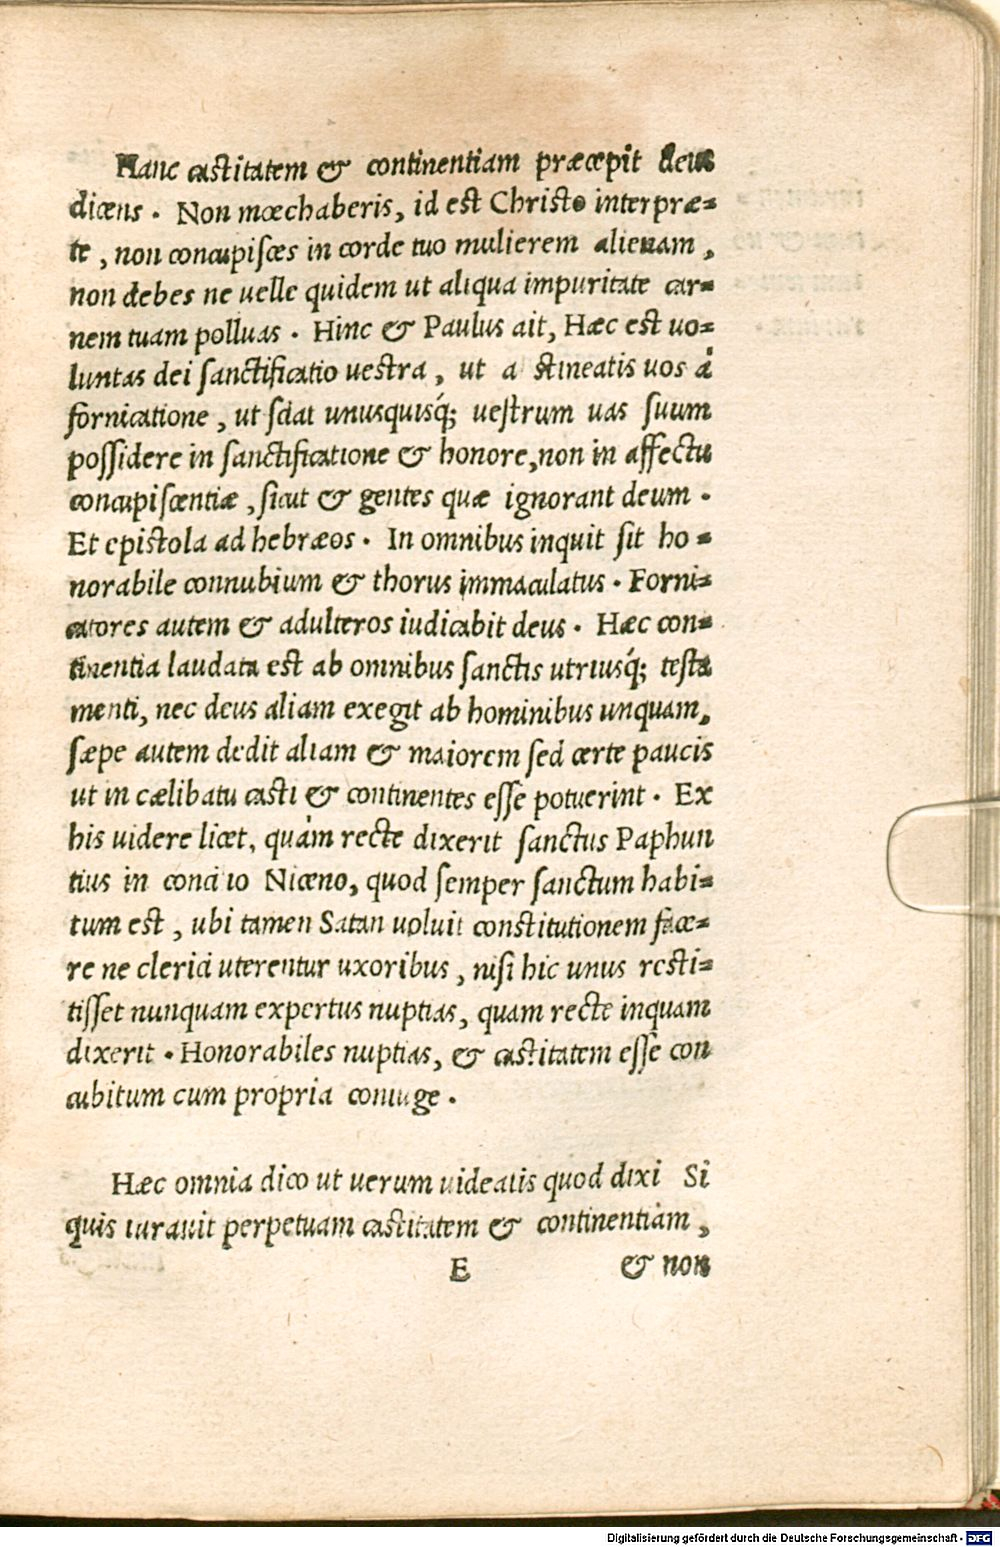 Hanc castitatem & continentiam præcepit deus
dicens . Non mœchaberis, id est Christo interpræ=
te , non concupisces in corde tuo mulierem alienam ,
non debes ne uelle quidem ut aliqua impuritate car=
nem tuam polluas . Hinc & Paulus ait, Hæc est uo=
luntas dei ſanctificatio uestra , ut a stineatis uos á
fornicatione , ut ſciat unusquisq́; ueſtrum uas ſuum
poſſidere in ſanctificatione & honore,non in affectu
concupiſcentiæ , ſicut & gentes quæ ignorant deum .
Et epistola ad hebræos . In omnibus inquit ſit ho =
norabile connubium & thorus immaculatus . Forni=
catores autem & adulteros iudicabit deus . Hæc con=
tinentia laudata est ab omnibus ſanctis utriusq́; testa
menti, nec deus aliam exegit ab hominibus unquam,
ſæpe autem dedit aliam & maiorem ſed certe paucis
ut in cælibatu casti & continentes eſſe potuerint . Ex
his uidere licet, quàm recte dixerit ſanctus Paphun
tius in concilio Niceno, quod ſemper ſanctum habi=
tum est , ubi tamen Satan uoluit constitutionem face=
re ne clerici uterentur uxoribus , niſi hic unus resti=
tiſſet nunquam expertus nuptias, quam recte inquam
dixerit . Honorabiles nuptias, & castitatem eſſe con
cubitum cum propria coniuge .
Hæc omnia dico ut uerum uideatis quod dixi Si
quis iurauit perpetuam castitatem & continentiam ,
E & non
Digitalisierung gefördert durch die Deutsche Forschungsgemeinschaft - DFG